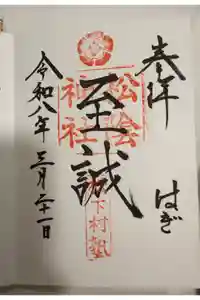 奉拝
はぎ
至誠
松陰神社
松下村塾
令和八年三月二十一日